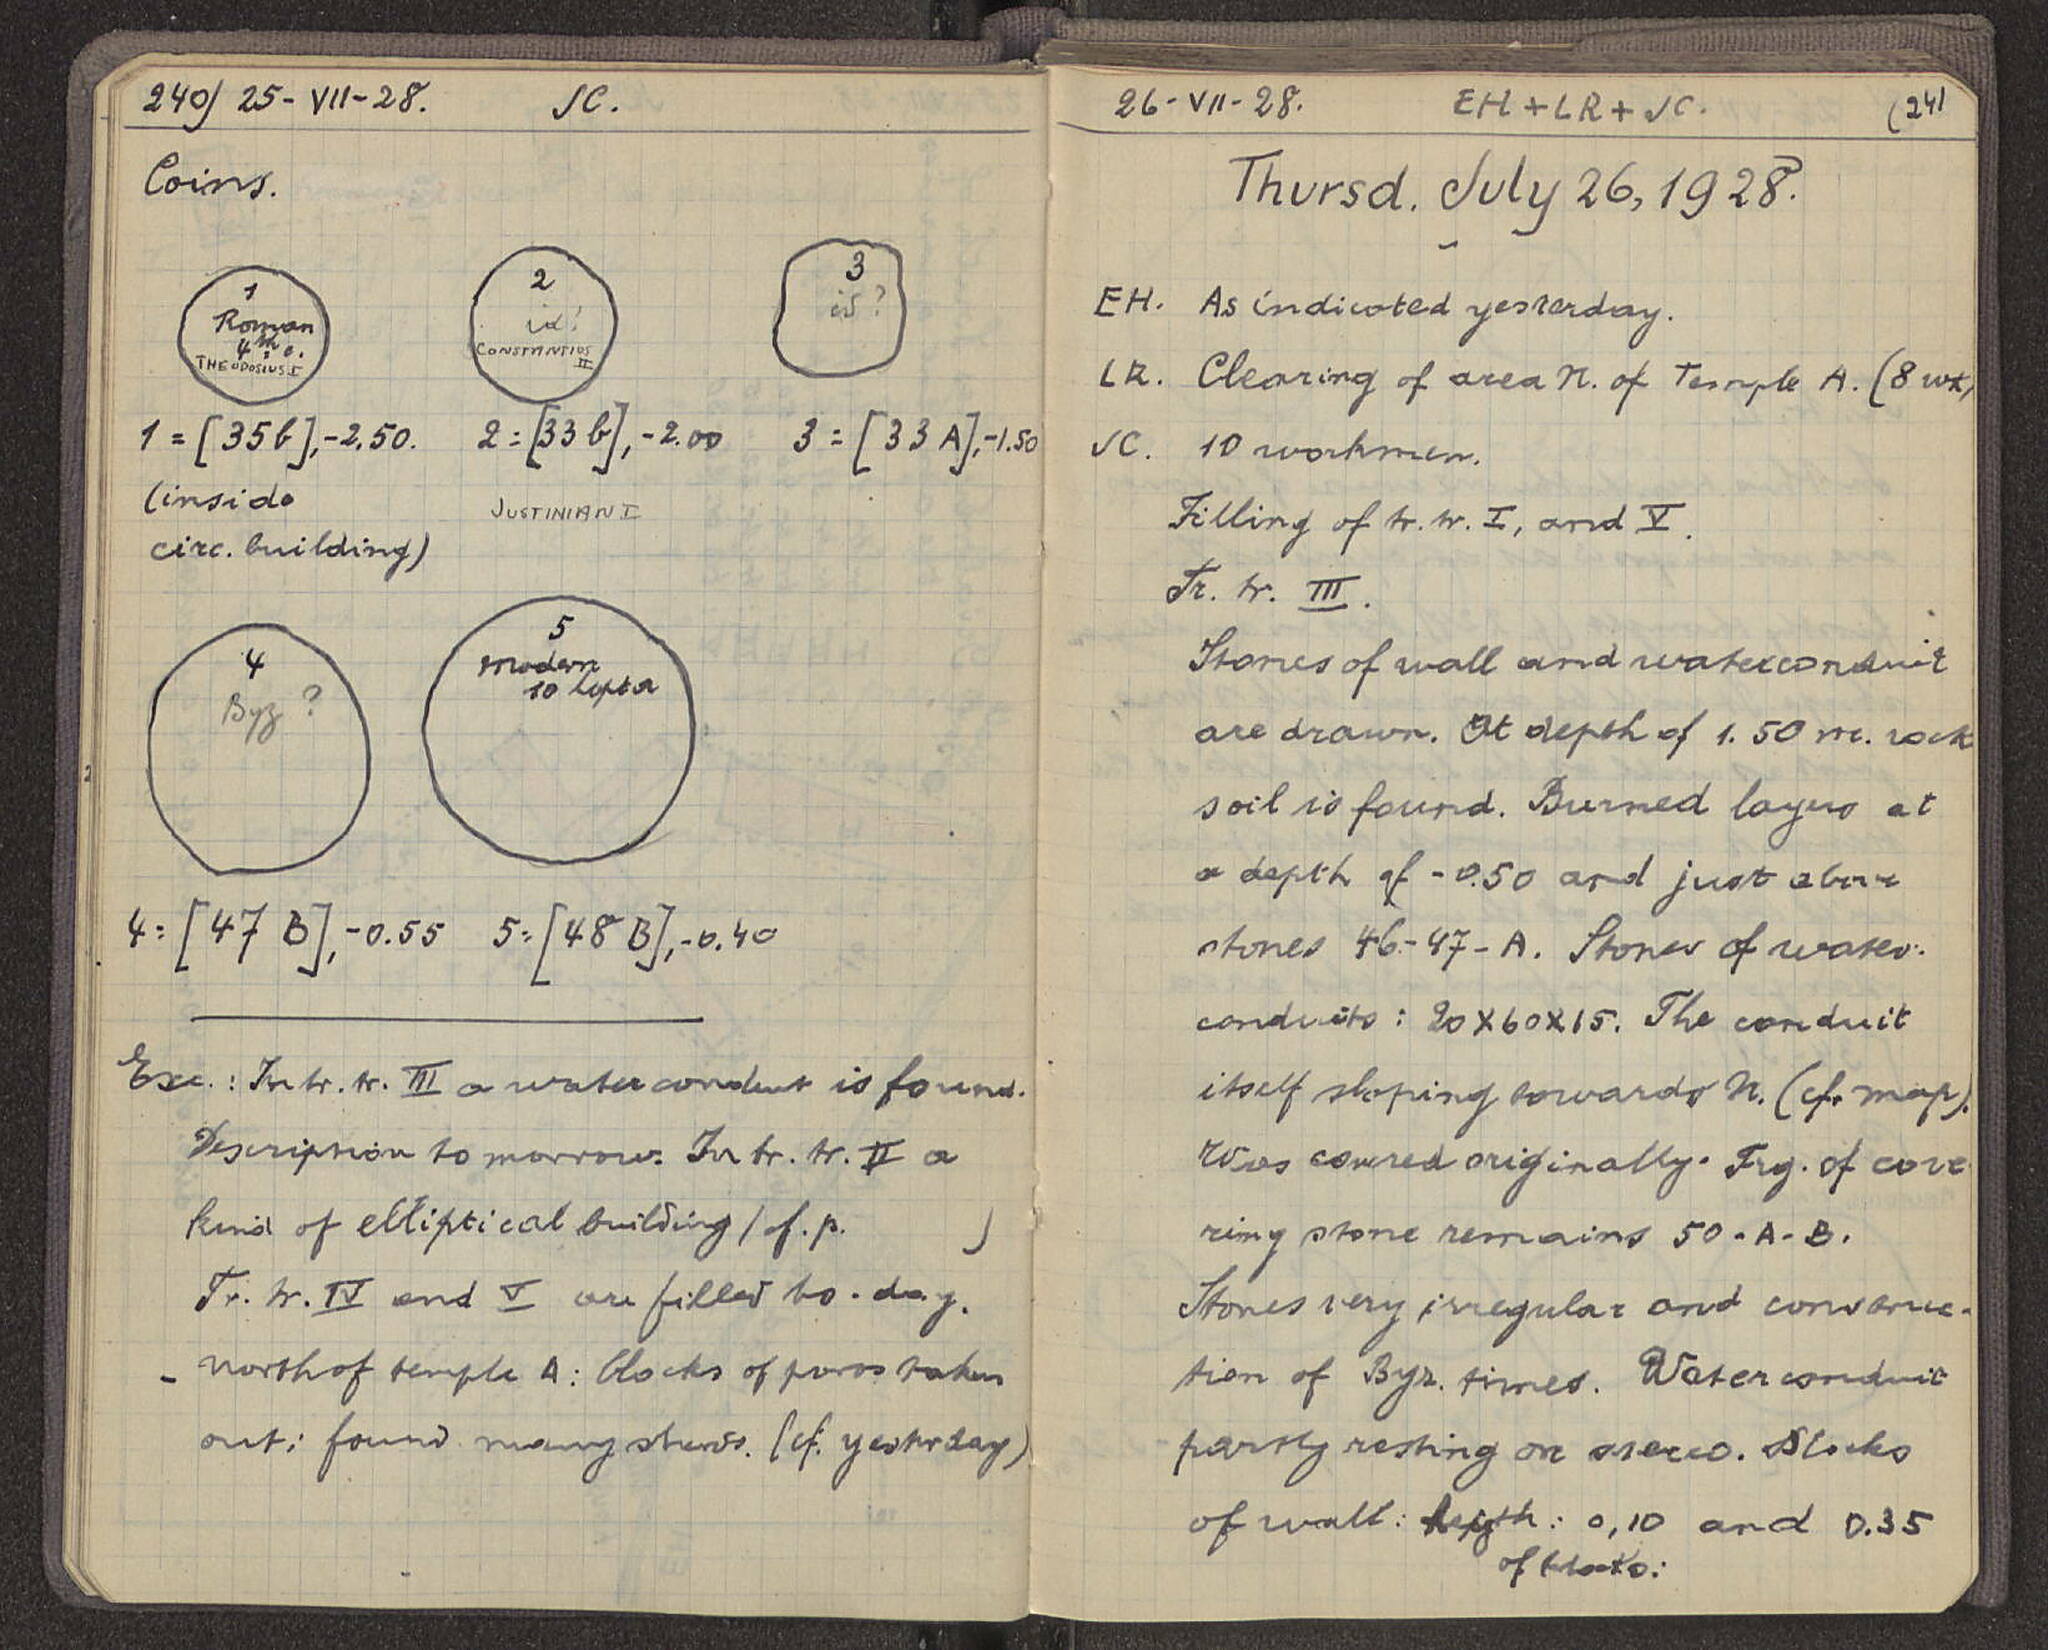 240) 25-VII-28. JC.
Coins.
1
Roman
4th c.
THEODOSIUS I
2
id?
CONSTANTIOS
II
3
id?
1 = [35b], -2.50. 2 = [33b], -2.00 3 = [33A], -1.50
(inside
circ. building)
JUSTINIAN I
4
Byz ?
5
modern
10 lepta
4 = [47 B], -0.55 5 = [48 B], -0.40
Exc. : In tr. tr. III a water conduit is found.
Description to morrow. In tr. tr. II a
kind of elliptical building (cf. p. )
Tr. tr. IV and V are filled to-day.
- North of temple A: blocks of poros taken
out; found many sherds. (cf. yesterday)
26-VII-28. EH + LR + JC. (241
Thursd. July 26, 1928.
EH. As indicated yesterday.
LR. Clearing of area N. of Temple A. (8 wk)
JC. 10 workmen.
Filling of tr. tr. I, and V.
Tr. tr. III.
Stones of wall and waterconduit
are drawn. At depth of 1.50 m. rock
soil is found. Burned layers at
a depth of -0.50 and just above
stones 46-47-A. Stones of water-
conduits : 20X60X15. The conduit
itself sloping towards N. (cf. map).
Was covered originally. Frg. of cove
ring stone remains 50-A-B.
Stones very irregular and construc-
tion of Byz. times. Waterconduit
partly resting on stereo. Blocks
of wall : depth : 0,10 and 0.35
of blocks: